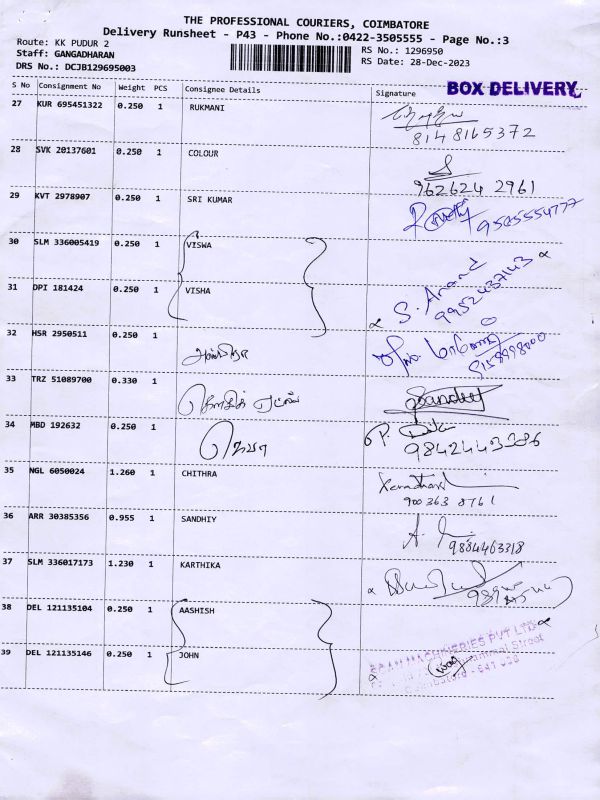 THE PROFESSIONAL COURIERS, COIMBATORE
Delivery Runsheet - P43 - Phone No.:0422-3505555 - Page No.:3
Route: KK PUDUR 2
Staff: GANGADHARAN
DRS No.: DCJB129695003
RS No.: 1296950
RS Date: 28-Dec-2023
BOX DELIVERY
S No Consignment No Weight PCS Consignee Details Signature
27 KUR 695451322 0.250 1 RUKMANI
8148165372
28 SVK 20137601 0.250 1 COLOUR
962624 2961
29 KVT 2978907 0.250 1 SRI KUMAR
9585554777
30 SLM 336005419 0.250 1 VISWA
31 DPI 181424 0.250 1 VISHA
S. Anand
9952437143
32 HSR 2950511 0.250 1
33 TRZ 51089700 0.330 1
Sandeep
34 MBD 192632 0.250 1
9842443386
35 NGL 6050024 1.260 1 CHITHRA
900363 8761
36 ARR 30385356 0.955 1 SANDHIY
9884463318
37 SLM 336017173 1.230 1 KARTHIKA
38 DEL 121135104 0.250 1 AASHISH
39 DEL 121135146 0.250 1 JOHN
MACHINERIES PVT LTD
Street